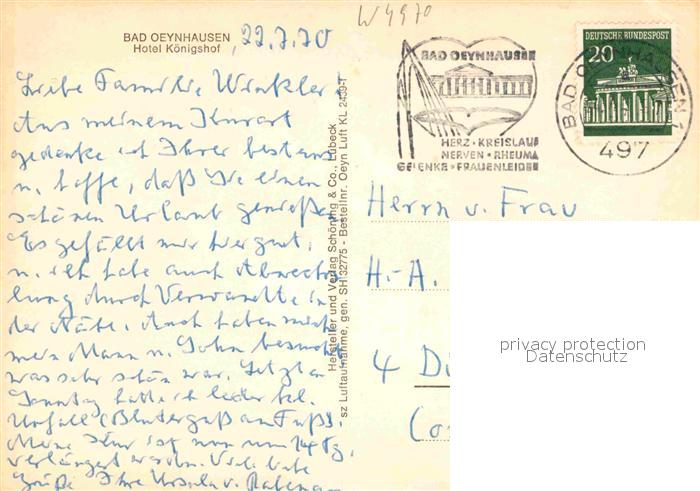 W4970
BAD OEYNHAUSEN
Hotel Königshof
, 22.7.70
Liebe Familie Winkler
Aus meinem Kurort
gedenke ich Ihrer bestens
u. hoffe, daß Sie einen
schönen Urlaub genießen
Es gefällt mir hier gut,
u. ich habe auch Abwechs
lung durch Verwandte in
der Nähe. Auch haben mich
mein Mann u. Sohn besucht
was sehr schön war. Letzten
Sonntag hatte ich leider kl.
Unfall (Bluterguß am Fuß).
Meine Kur ist nun um 14 Tg.
verlängert worden. Viele liebe
Grüße Ihre Ursula v.
Hersteller und Verlag Schöning & Co., Lübeck
sz Luftaufnahme, gen. SH 32775 - Bestellnr. Oeyn Luft KL 2459-T
BAD OEYNHAUSEN
HERZ • KREISLAUF
NERVEN • RHEUMA
GELENKE • FRAUENLEIDEN
DEUTSCHE BUNDESPOST
20
BAD OEYNHAUSEN 1
497
Herrn u. Frau
H.-A.
4 Dü
privacy protection
Datenschutz